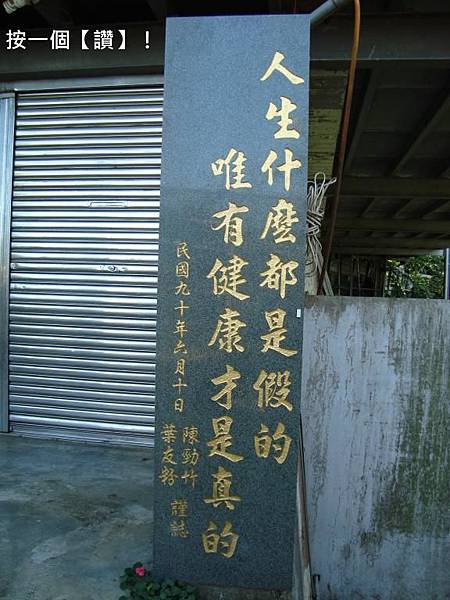 按一個【讚】！
人生什麼都是假的
唯有健康才是真的
民國九十年六月十日
陳勁竹
葉友
謹誌